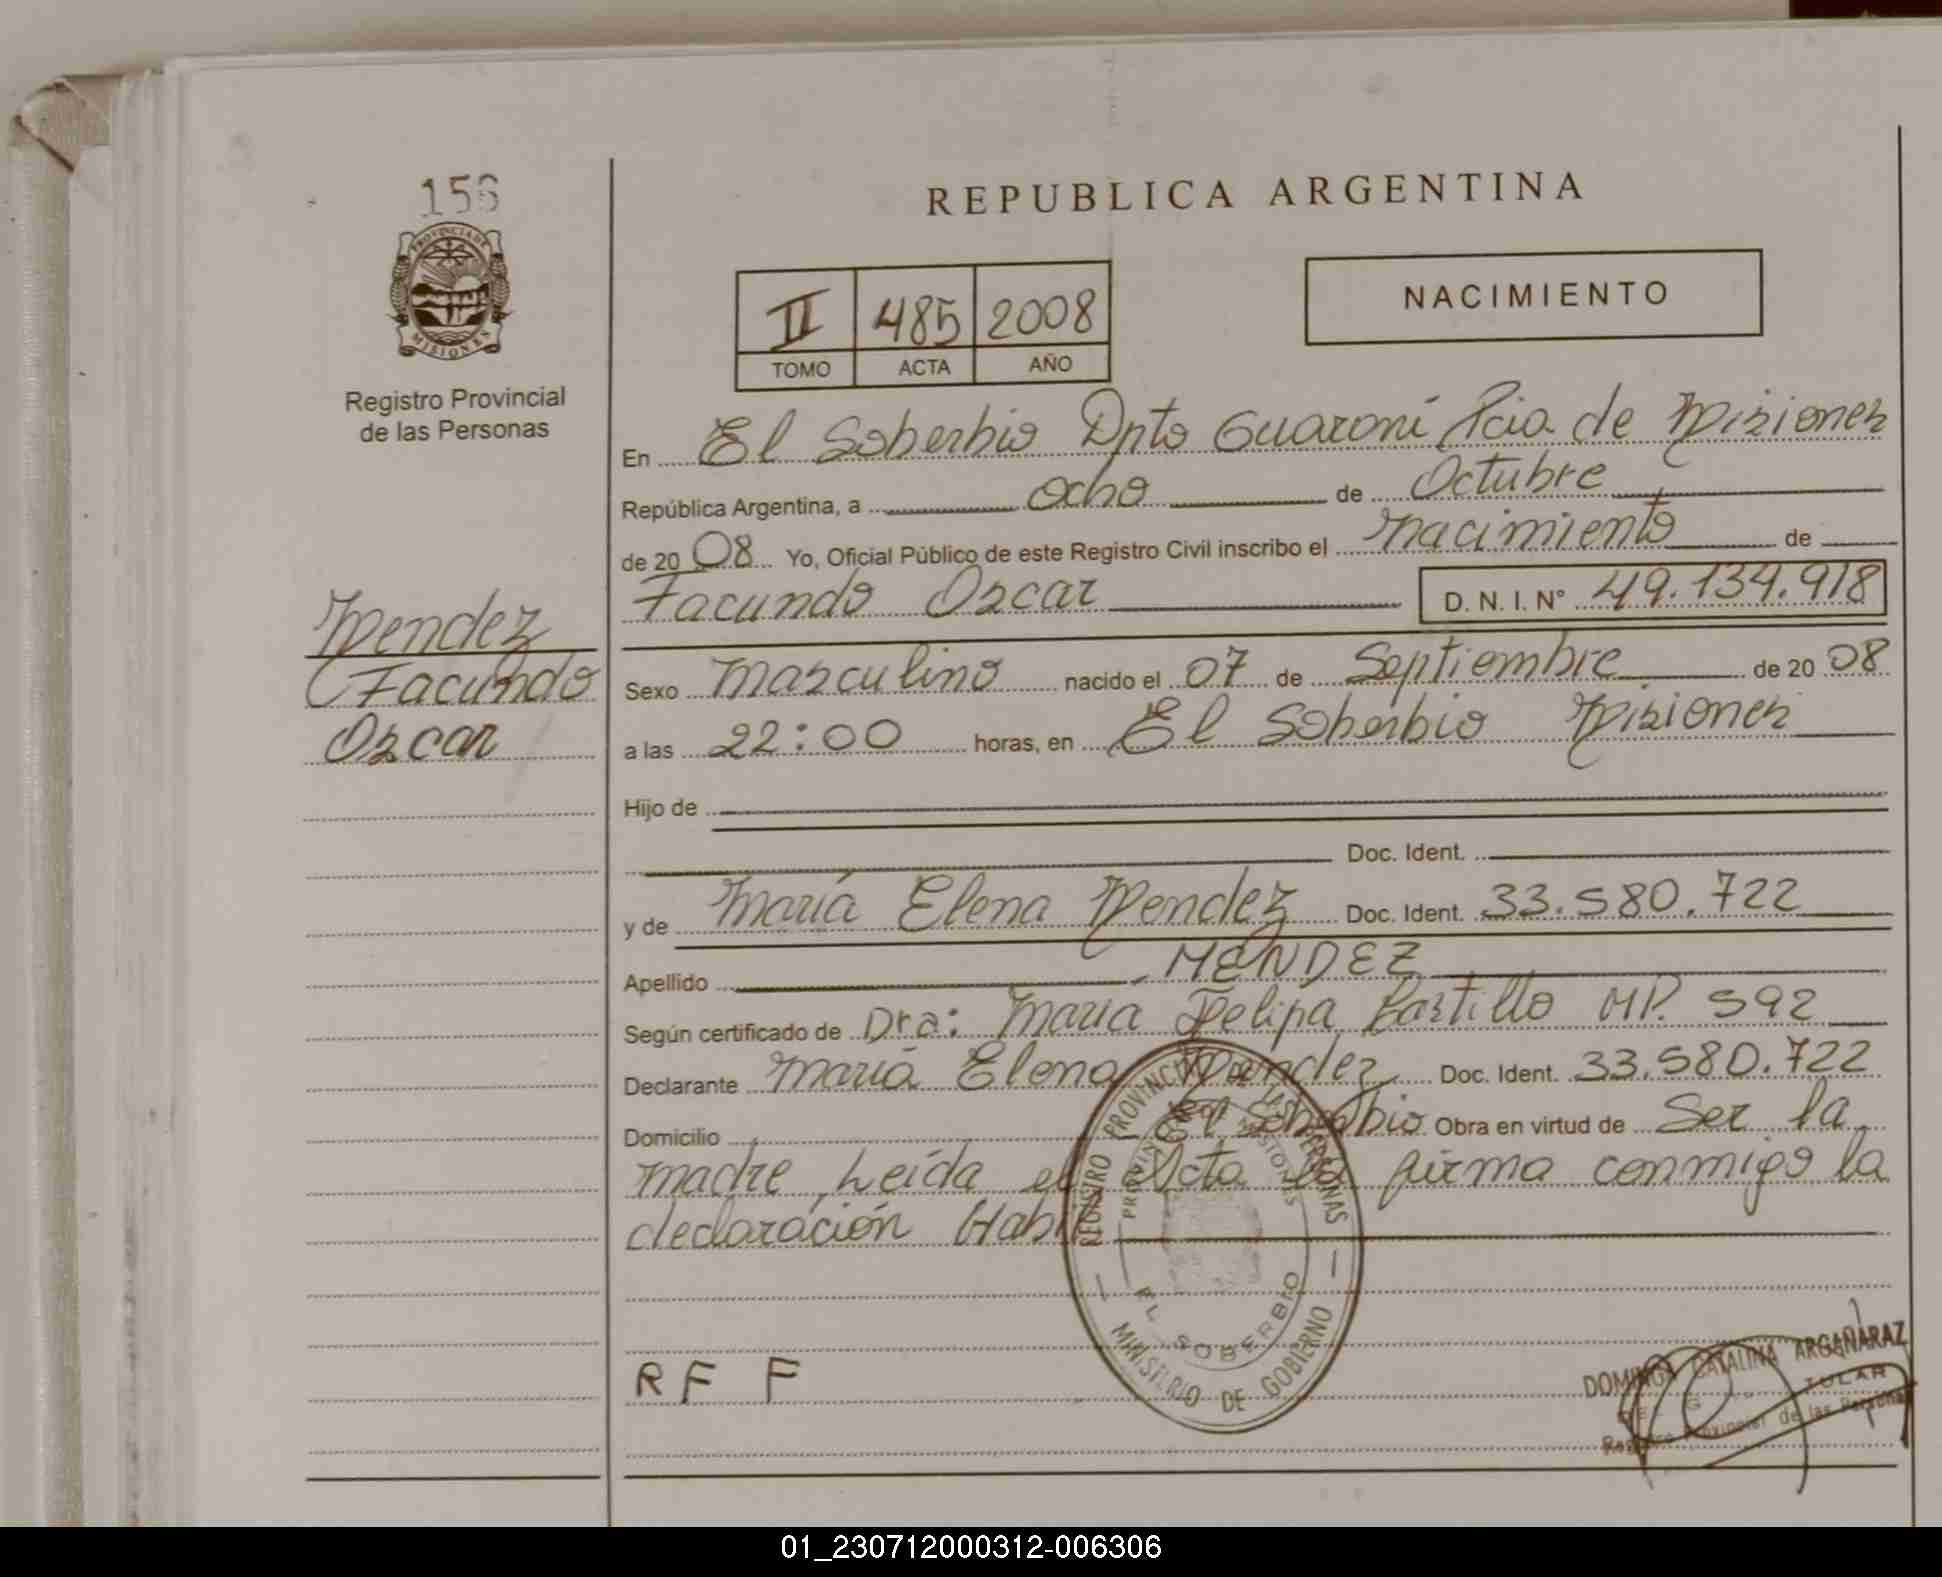 156
PROVINCIA DE
MISIONES
Registro Provincial
de las Personas
REPUBLICA ARGENTINA
II 485 2008
TOMO ACTA AÑO
NACIMIENTO
En El Soberbio Dpto Guaraní Pcia de Misiones
República Argentina, a ocho de Octubre
de 2008 Yo, Oficial Público de este Registro Civil inscribo el nacimiento de
Facundo Oscar D. N. I. N° 49.134.918
Mendez
Facundo
Oscar
Sexo Masculino nacido el 07 de Septiembre de 2008
a las 22:00 horas, en El Soberbio Misiones
Hijo de
Doc. Ident.
y de María Elena Mendez Doc. Ident. 33.580.722
Apellido MENDEZ
Según certificado de Dra: Maria Felipa Castillo MP. 592
Declarante María Elena Mendez Doc. Ident. 33.580.722
Domicilio El Soberbio Obra en virtud de Ser la
madre, Leída el Acta la firma conmigo la
declaración Habil
REGISTRO PROVINCIAL DE LAS PERSONAS
PROVINCIA MISIONES
EL SOBERBIO
MINISTERIO DE GOBIERNO
R F F
DOMINGA CATALINA ARGAÑARAZ
TULAR
Registro Provincial de las Personas
01_230712000312-006306